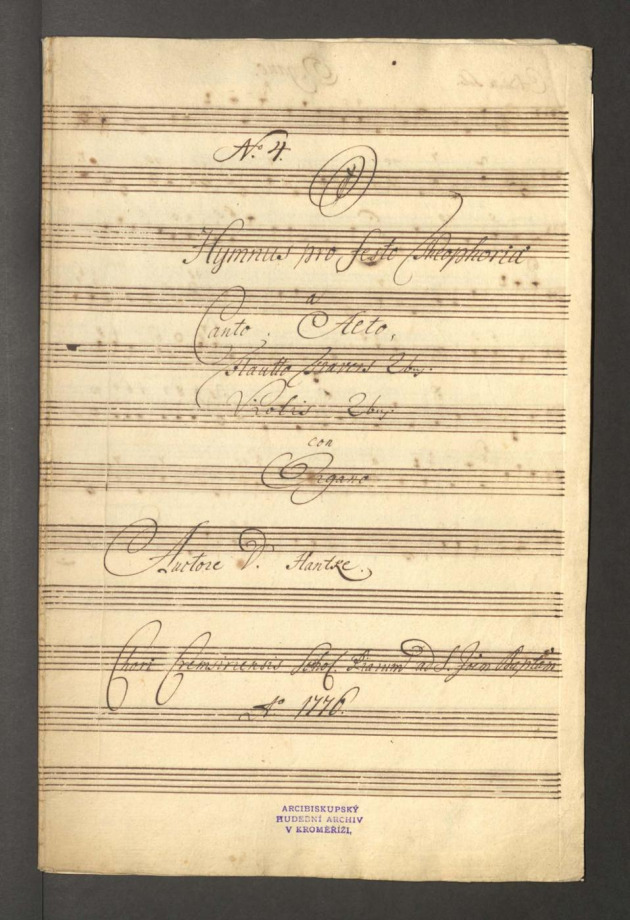 No. 4.
Hymnus pro festo Theophoriæ
a
Canto. Alto.
Flautto Travers 2bus.
Violis 2bus
con
Organo
Auctore D. Hantke.
Chori Cremsiriensis Schol. Piarum ad S. Joem Baptam
Ao 1776.
ARCIBISKUPSKÝ
HUDEBNÍ ARCHIV
V KROMĚŘÍŽI,